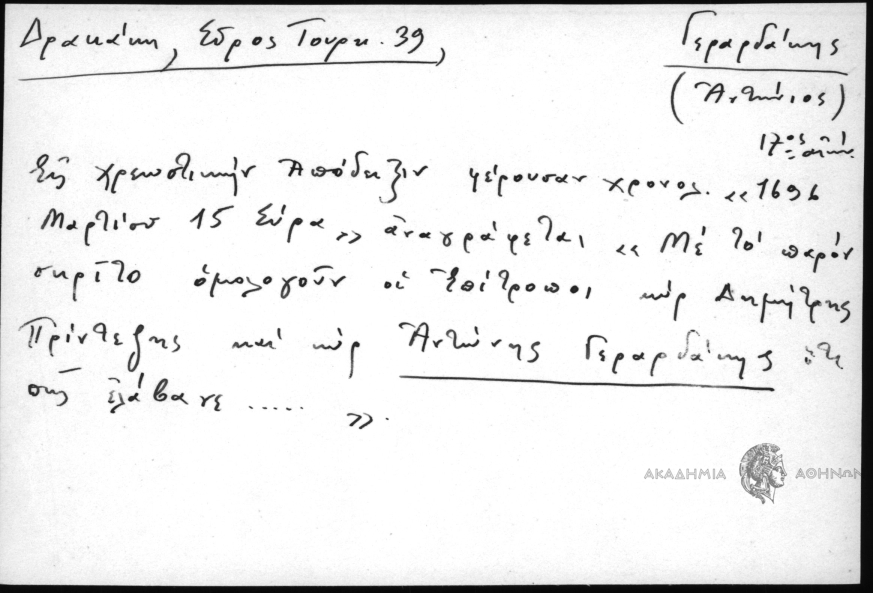 Δρακάκη, Σύρος Τουρκ. 39,
Γεραρδάκης
(Ἀντώνιος)
17ος αἰών.
Εἰς χρεωστικήν Ἀπόδειξιν φέρουσαν χρονολ. «1696
Μαρτίου 15 Σύρα» ἀναγράφεται, «Μέ τό παρόν
σκρίτο ὁμολογοῦν οἱ Ἐπίτροποι κύρ Δημήτρης
Πρίντεζης καί κύρ Ἀντώνης Γεραρδάκης ὅτι
πῶς ἐλάβανε ..... ».
ΑΚΑΔΗΜΙΑ ΑΘΗΝΩΝ